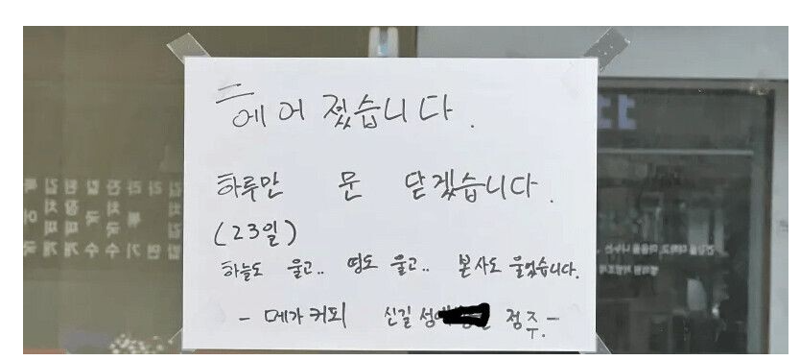 헤어 졌습니다.
하루만 문 닫겠습니다.
(23일)
하늘도 울고.. 땅도 울고.. 본사도 울었습니다.
- 메가커피 신길 성애 점주.-